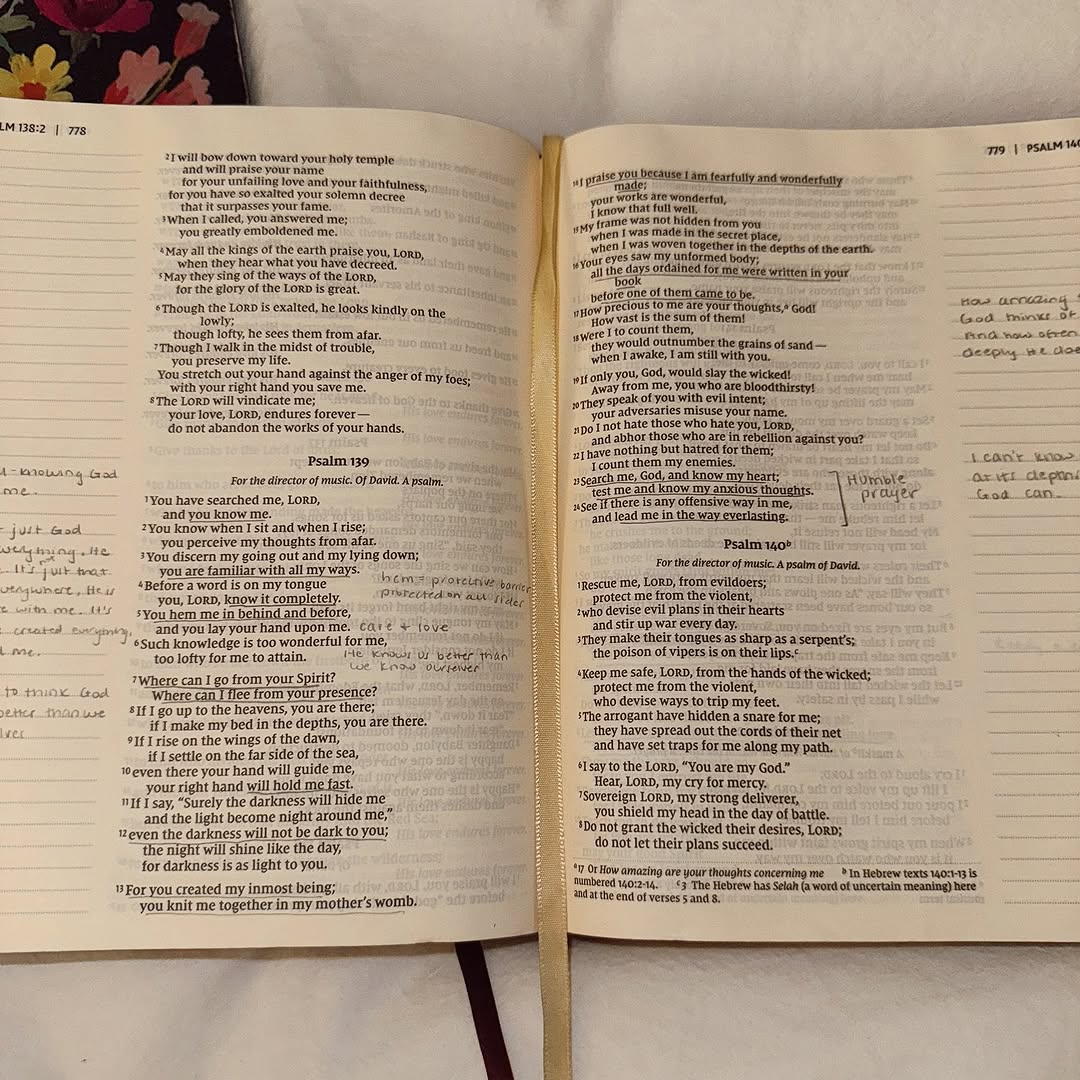 LM 138:2 | 778
2 I will bow down toward your holy temple
and will praise your name
for your unfailing love and your faithfulness,
for you have so exalted your solemn decree
that it surpasses your fame.
3 When I called, you answered me;
you greatly emboldened me.
4 May all the kings of the earth praise you, LORD,
when they hear what you have decreed.
5 May they sing of the ways of the LORD,
for the glory of the LORD is great.
6 Though the LORD is exalted, he looks kindly on the
lowly;
though lofty, he sees them from afar.
7 Though I walk in the midst of trouble,
you preserve my life.
You stretch out your hand against the anger of my foes;
with your right hand you save me.
8 The LORD will vindicate me;
your love, LORD, endures forever—
do not abandon the works of your hands.
Psalm 139
For the director of music. Of David. A psalm.
1 You have searched me, LORD,
and you know me.
2 You know when I sit and when I rise;
you perceive my thoughts from afar.
3 You discern my going out and my lying down;
you are familiar with all my ways.
4 Before a word is on my tongue
you, LORD, know it completely.
5 You hem me in behind and before,
and you lay your hand upon me.
6 Such knowledge is too wonderful for me,
too lofty for me to attain.
7 Where can I go from your Spirit?
Where can I flee from your presence?
8 If I go up to the heavens, you are there;
if I make my bed in the depths, you are there.
9 If I rise on the wings of the dawn,
if I settle on the far side of the sea,
10 even there your hand will guide me,
your right hand will hold me fast.
11 If I say, “Surely the darkness will hide me
and the light become night around me,”
12 even the darkness will not be dark to you;
the night will shine like the day,
for darkness is as light to you.
13 For you created my inmost being;
you knit me together in my mother’s womb.
hem = protective barrier
protected on all sides
care + love
He knows us better than
we know ourselves
-knowing God
me.
just God
everything. He
. It's just that
everywhere, He is
with me. It's
created everything,
me.
to think God
better than we
779 | PSALM 140
14 I praise you because I am fearfully and wonderfully
made;
your works are wonderful,
I know that full well.
15 My frame was not hidden from you
when I was made in the secret place,
when I was woven together in the depths of the earth.
16 Your eyes saw my unformed body;
all the days ordained for me were written in your
book
before one of them came to be.
17 How precious to me are your thoughts,a God!
How vast is the sum of them!
18 Were I to count them,
they would outnumber the grains of sand—
when I awake, I am still with you.
19 If only you, God, would slay the wicked!
Away from me, you who are bloodthirsty!
20 They speak of you with evil intent;
your adversaries misuse your name.
21 Do I not hate those who hate you, LORD,
and abhor those who are in rebellion against you?
22 I have nothing but hatred for them;
I count them my enemies.
23 Search me, God, and know my heart;
test me and know my anxious thoughts.
24 See if there is any offensive way in me,
and lead me in the way everlasting.
Psalm 140b
For the director of music. A psalm of David.
1 Rescue me, LORD, from evildoers;
protect me from the violent,
2 who devise evil plans in their hearts
and stir up war every day.
3 They make their tongues as sharp as a serpent’s;
the poison of vipers is on their lips.c
4 Keep me safe, LORD, from the hands of the wicked;
protect me from the violent,
who devise ways to trip my feet.
5 The arrogant have hidden a snare for me;
they have spread out the cords of their net
and have set traps for me along my path.
6 I say to the LORD, “You are my God.”
Hear, LORD, my cry for mercy.
7 Sovereign LORD, my strong deliverer,
you shield my head in the day of battle.
8 Do not grant the wicked their desires, LORD;
do not let their plans succeed.
a 17 Or How amazing are your thoughts concerning me b In Hebrew texts 140:1-13 is
numbered 140:2-14. c 3 The Hebrew has Selah (a word of uncertain meaning) here
and at the end of verses 5 and 8.
Humble
prayer
How amazing
God thinks of
And how often
deeply He
I can't know
at its
God can.